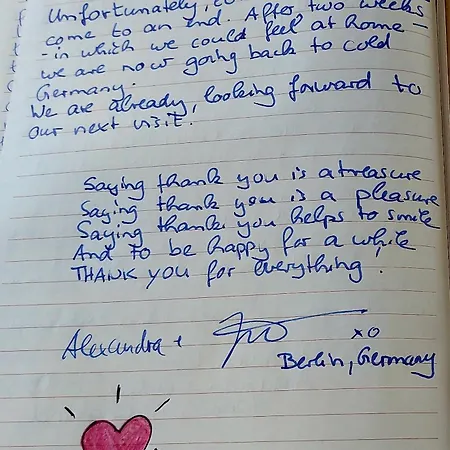 Unfortunately,
come to an end. After two weeks
- in which we could feel at home -
we are now going back to cold
Germany.
We are already, looking forward to
our next visit.
Saying thank you is a treasure
Saying thank you is a pleasure
Saying thank you helps to smile
And to be happy for a while
THANK YOU for everything!
Alexandra +
xo
Berlin, Germany